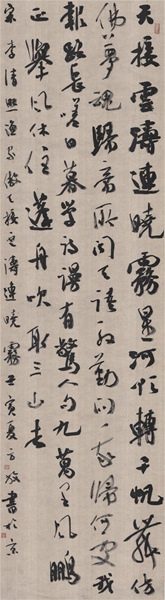 天接雲濤連曉霧星河欲轉千帆舞仿
佛夢魂歸帝所聞天語殷勤問我歸何處我
報路長嗟日暮學詩謾有驚人句九萬里風鵬
正舉風休住蓬舟吹取三山去
宋李清照漁家傲天接雲濤連曉霧亥夏方書於京